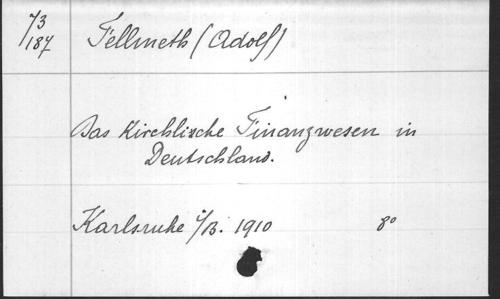 73
187
Fellmeth (Adolf)
Das Kirchlische Finanzwesen in
Deutschland.
Karlsruhe i/B. 1910 8°